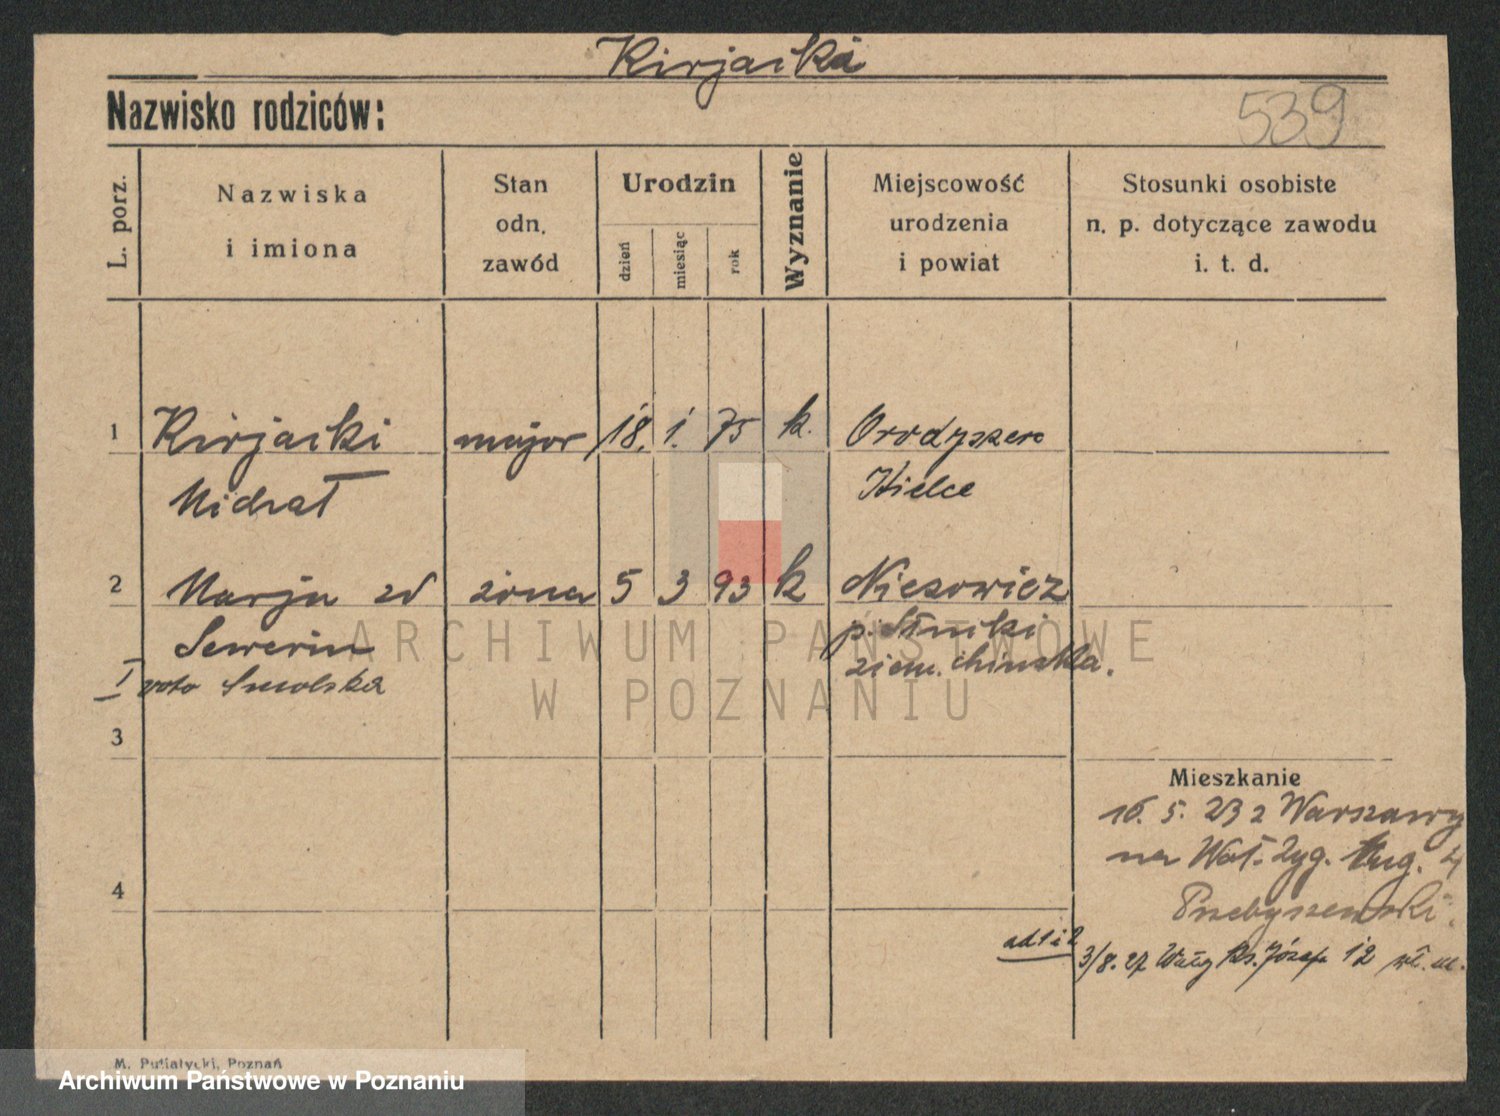 Kirjacki
Nazwisko rodziców:
539
L. porz.
Nazwiska
i imiona
Stan
odn.
zawód
Urodzin
dzień
miesiąc
rok
Wyznanie
Miejscowość
urodzenia
i powiat
Stosunki osobiste
n. p. dotyczące zawodu
i. t. d.
1 Kirjacki major 18. 1. 75 k.
Kielce
2 Marja zd żona 5 3 93 k
Sewerin
I voto Smolska
ziem.
3
Mieszkanie
16. 5. 23 z Warszawy
na Wał. Zyg. Aug. 4
Przebyszewski.
4
ad 1 i 2 3/8. 27 Wały Ks. Józefa 12 wł. m.
M. Putiatycki, Poznań
ARCHIWUM PAŃSTWOWE
W POZNANIU
Archiwum Państwowe w Poznaniu